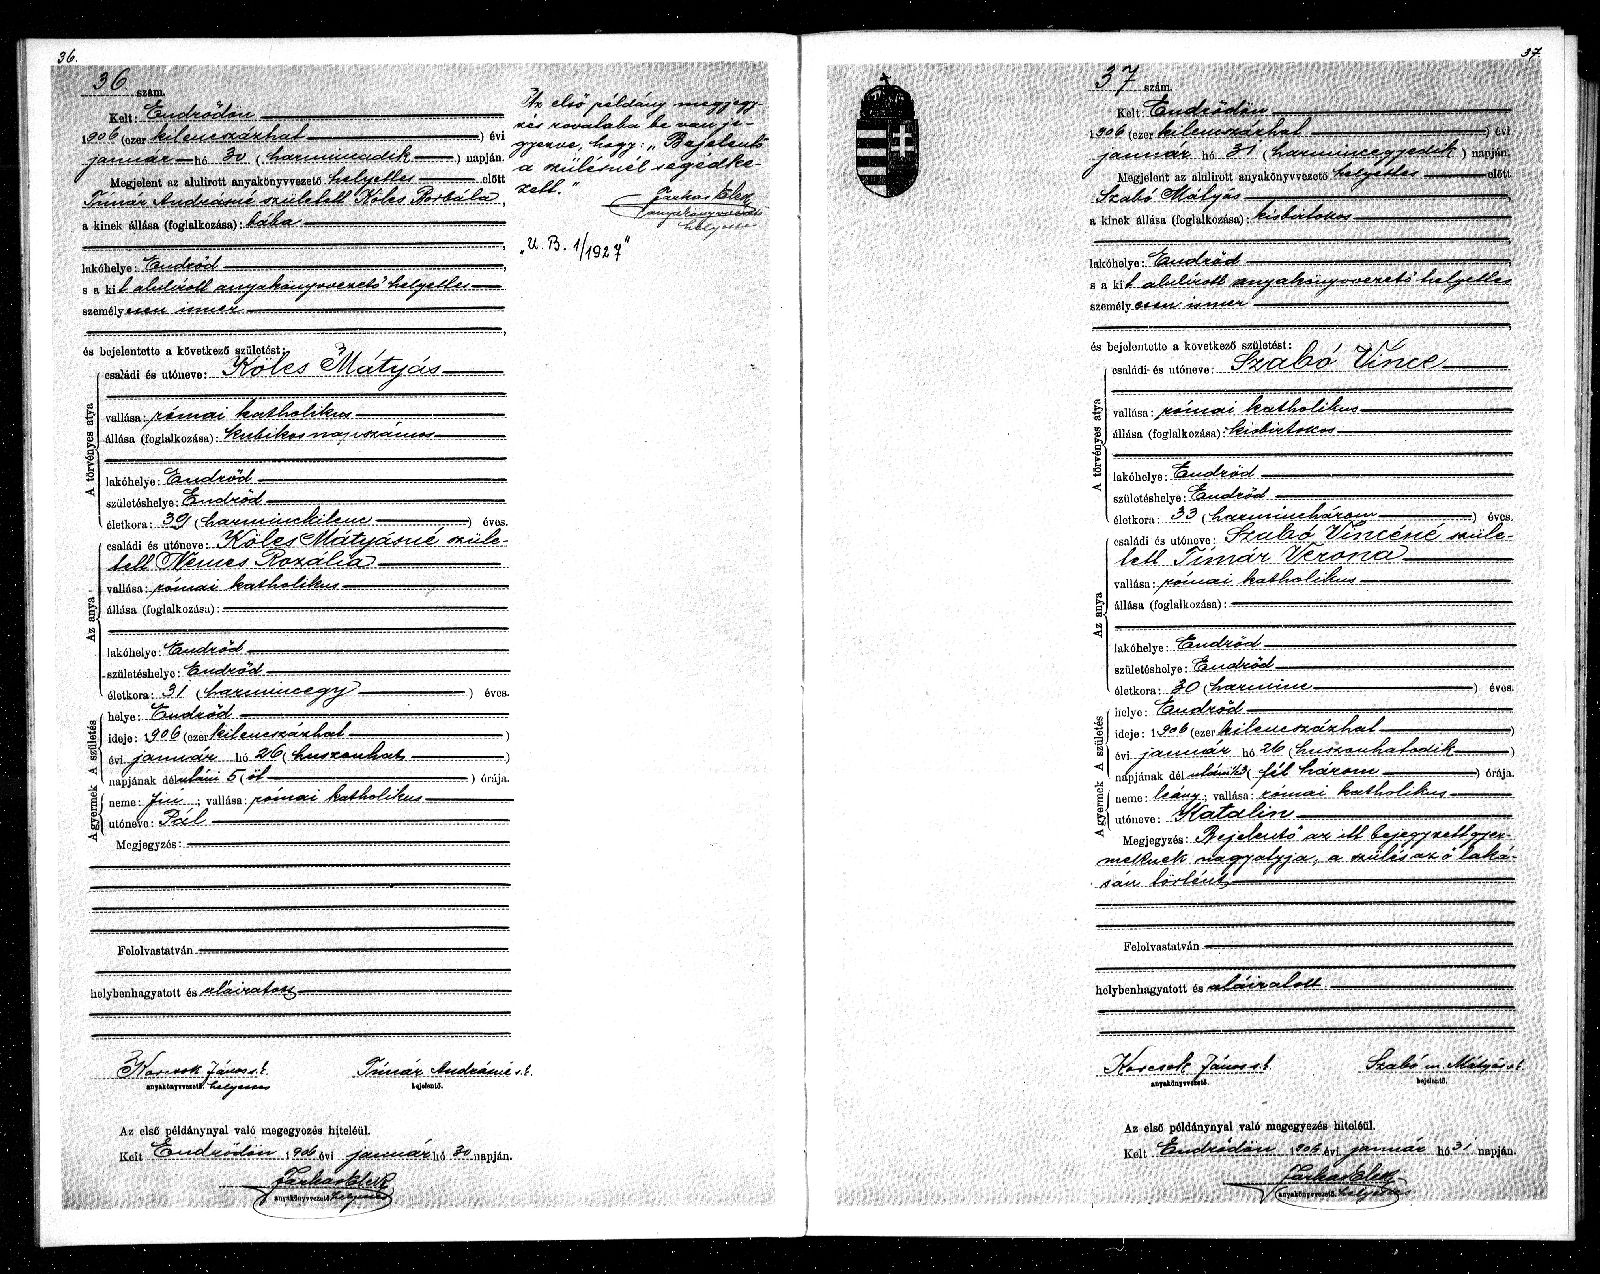 36.
36 szám.
Kelt: Endrődön
1906 (ezer kilenczázhat) évi
január hó 30 (harminadik) napján.
Megjelent az alulirott anyakönyvvezető helyettes előtt
Tímár Andrásné született Köles Borbála,
a kinek állása (foglalkozása): bába
lakóhelye: Endrőd
s a kit alulírott anyakönyvvezető helyettes
személyesen ismer
és bejelentette a következő születést:
A törvényes atya
családi és utóneve: Köles Mátyás
vallása: római katholikus
állása (foglalkozása): kubikos napszámos
lakóhelye: Endrőd
születéshelye: Endrőd
életkora: 39 (harminckilenc) éves.
Az anya
családi és utóneve: Köles Mátyásné szüle-
tett Nemes Rozália
vallása: római katholikus
állása (foglalkozása):
lakóhelye: Endrőd
születéshelye: Endrőd
életkora: 31 (harmincegy) éves.
A születés
helye: Endrőd
ideje: 1906 (ezer kilencszázhat)
évi január hó 26 (huszonhat)
napjának délutáni 5 (öt) órája.
A gyermek
neme: fiú; vallása: római katholikus
utóneve: Pál
Megjegyzés:
Felolvastatván
helybenhagyatott és aláiratott
Korcsok János s.k. Tímár Andrásné s.k.
anyakönyvvezető helyettes bejelentő.
Az első példánynyal való megegyezés hiteléül.
Kelt Endrődön 1906 évi január hó 30 napján.
Farkas Elek
anyakönyvvezető helyettes
Az első példány megjegy-
zés rovatába be van je-
gyezve, hogy: „Bejelentő
a szülésnél segédke-
zett."
Farkas Elek
anyakönyvvezető
helyettes
„U. B. 1/1927"
37.
37 szám.
Kelt: Endrődön
1906 (ezer kilenczázhat) évi
január hó 31 (harmincegyedik) napján.
Megjelent az alulirott anyakönyvvezető helyettes előtt
Szabó Mátyás
a kinek állása (foglalkozása): kisbirtokos
lakóhelye: Endrőd
s a kit alulírott anyakönyvvezető helyettes
személyesen ismer
és bejelentette a következő születést:
A törvényes atya
családi és utóneve: Szabó Vince
vallása: római katholikus
állása (foglalkozása): kisbirtokos
lakóhelye: Endrőd
születéshelye: Endrőd
életkora: 33 (harminchárom) éves.
Az anya
családi és utóneve: Szabó Vincéné szüle-
tett Tímár Verona
vallása: római katholikus
állása (foglalkozása):
lakóhelye: Endrőd
születéshelye: Endrőd
életkora: 30 (harminc) éves.
A születés
helye: Endrőd
ideje: 1906 (ezer kilencszázhat)
évi január hó 26 (huszonhatodik)
napjának délutáni ½3 (fél három) órája.
A gyermek
neme: leány; vallása: római katholikus
utóneve: Katalin
Megjegyzés: Bejelentő az itt bejegyzett gyer-
meknek nagyatyja, a szülés az ő laká-
sán történt.
Felolvastatván
helybenhagyatott és aláiratott
Korcsok János s.k. Szabó m. Mátyás s.k.
anyakönyvvezető. bejelentő.
Az első példánynyal való megegyezés hiteléül.
Kelt Endrődön 1906 évi január hó 31 napján.
Farkas Elek
anyakönyvvezető helyettes